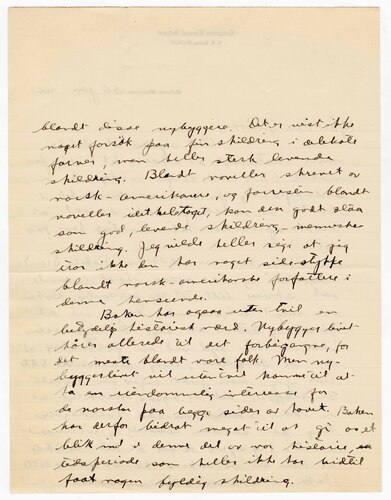 blandt disse nybyggere. Det er vist ikke
noget forsök paa fin skildring i delikate
farver, men heller sterk levende
skildring. Blandt noveller skrevet av
norsk-amerikanere, og forresten blandt
noveller i det hele taget, kan den godt staa
som god, levende skildring - menneske
skildring. Jeg vilde heller sige at jeg
tror ikke den har noget sidestykke
blandt norsk-amerikanske forfattere i
denne henseende.
Boken har ogsaa uten tvil en
betydelig historisk værd. Nybygger livet
hörer allerede til det forbigangne, for
det meste blandt vore folk. Men ny-
byggerlivet vil uten tvil komme til at
ha en eiendommelig interesse for
de norske paa begge sider av havet. Boken
har derfor bidrat meget til at gi os et
blik ind i denne del av vor historie, en
tidsperiode som hellers ikke har hidtil
faat nogen fyldig skildring.